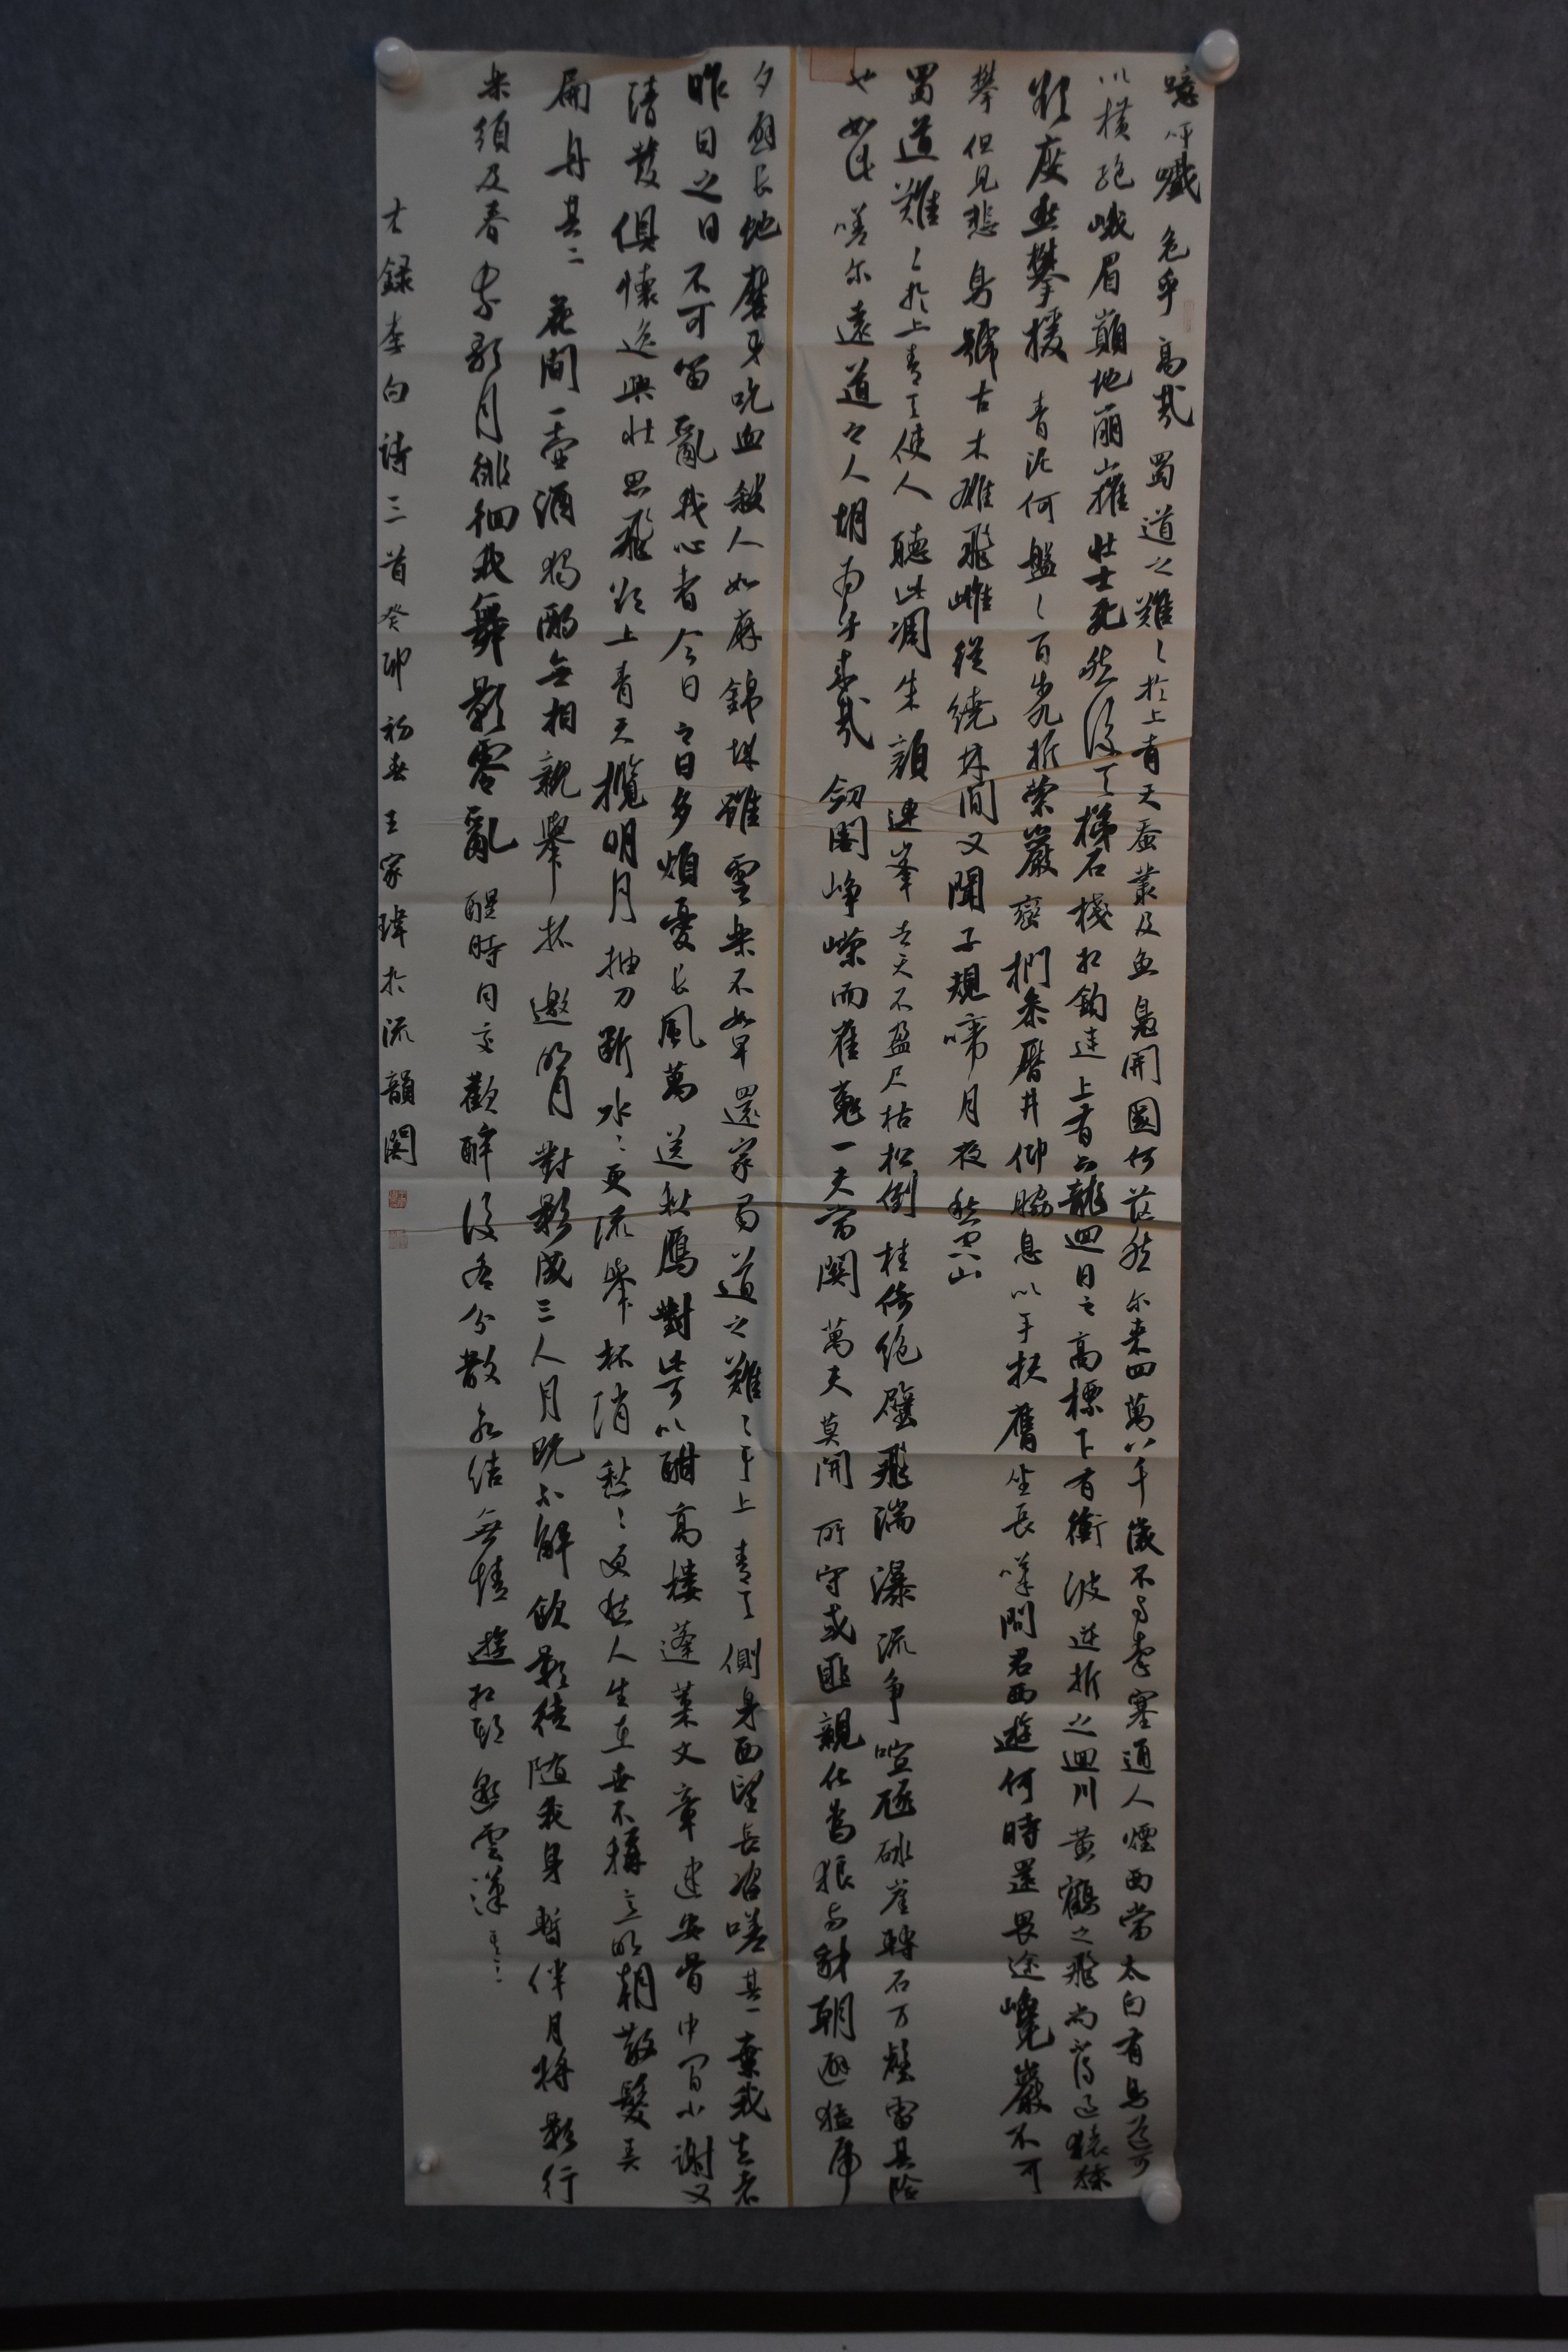 噫吁嚱危乎高哉蜀道之難〻於上青天蚕叢及魚鳧開國何茫然尔来四萬八千歲不与秦塞通人煙西當太白有鳥道可
以橫絕峨眉巔地崩摧壯士死然後天梯石棧相鉤連上有六龍迴日之高標下有衝波逆折之迴川黃鶴之飛尚不得過猿猱
欲度愁攀援青泥何盤〻百步九折縈巖巒捫參歷井仰脇息以手扶膺坐長嘆問君西遊何時還畏途巉巖不可
攀但見悲鳥號古木雄飛雌從繞林間又聞子規啼月夜愁空山
蜀道難〻於上青天使人聽此凋朱顏連峯去天不盈尺枯松倒桂倚絕壁飛湍瀑流爭喧豗砯崖轉石万壑雷其險
也如此嗟尔遠道之人胡为乎来哉劍閣崢嶸而崔嵬一夫當關萬夫莫開所守或匪親化為狼与豺朝避猛虎
夕避長蛇磨牙吮血殺人如麻錦城雖雲樂不如早還家蜀道之難〻于上青天側身西望長咨嗟其一棄我去者
昨日之日不可留亂我心者今日之日多煩憂長風萬送秋鴈對此可以酣高樓蓬萊文章建安骨中間小謝又
清發俱懷逸興壯思飛欲上青天攬明月抽刀斷水〻更流舉杯消愁〻更愁人生在世不稱意明朝散髮弄
扁舟其二花間一壺酒獨酌無相親舉杯邀明月對影成三人月既不解飲影徒随我身暫伴月將影行
樂須及春我歌月徘徊我舞影零亂醒時同交歡醉後各分散永結無情遊相期邈雲漢其三
右錄李白詩三首癸卯初春王家瑋於流韻閣